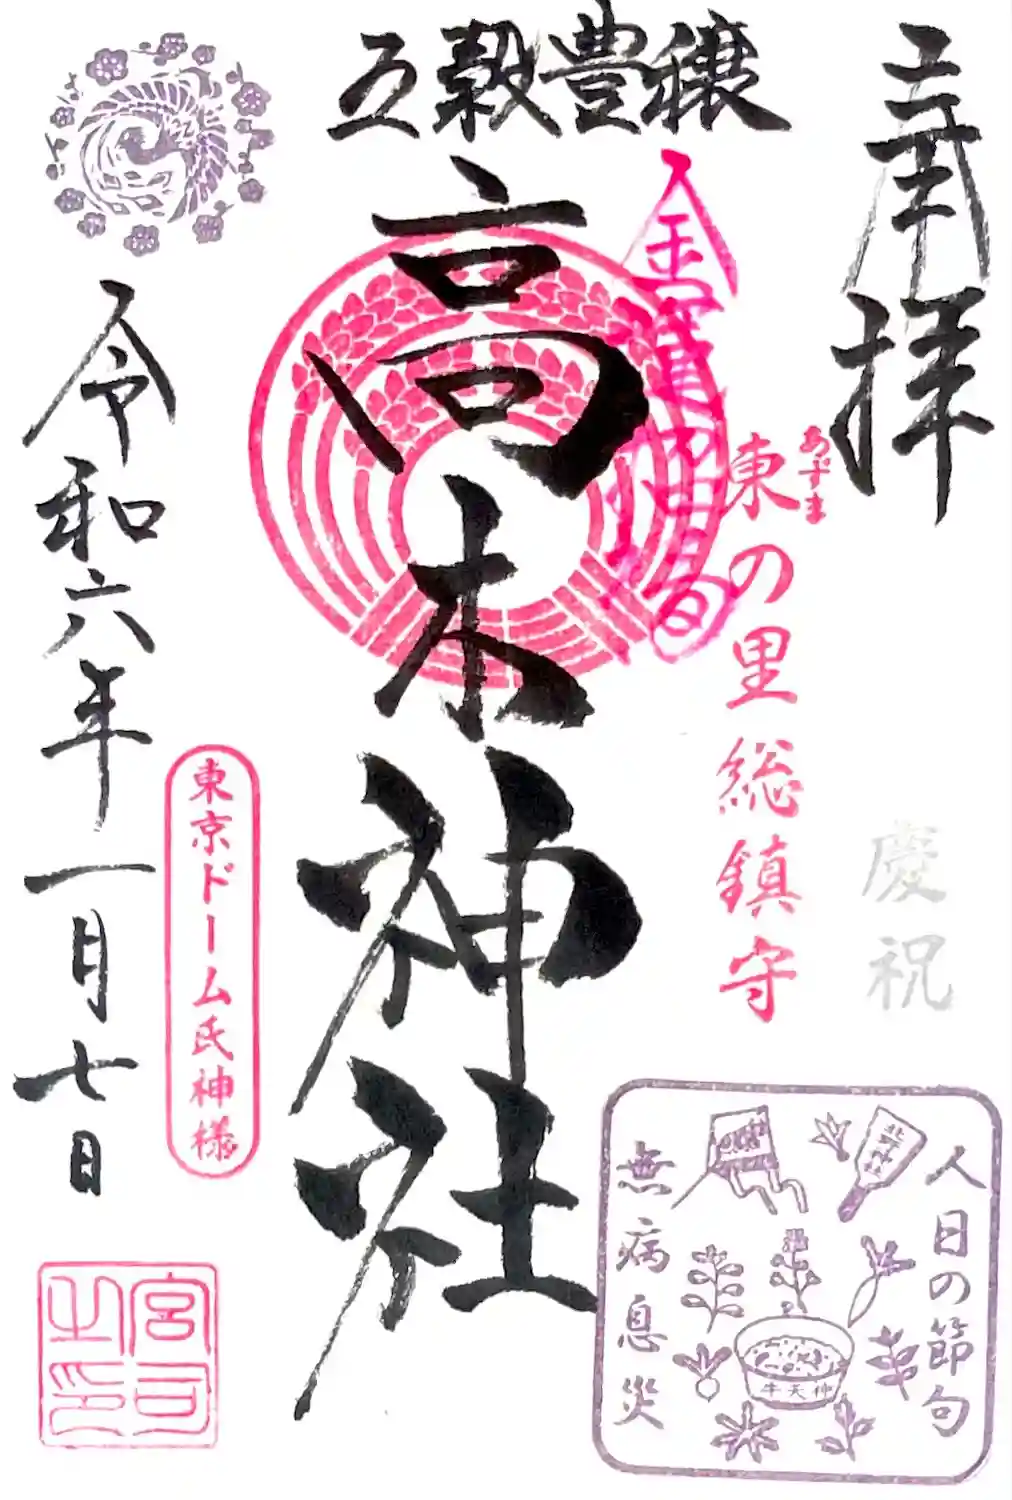 奉拝
慶祝
五穀豊穣
東の里総鎮守
あずま
高木神社
令和六年一月七日
東京ドーム氏神様
宮司之印
人日の節句
無病息災
牛天神